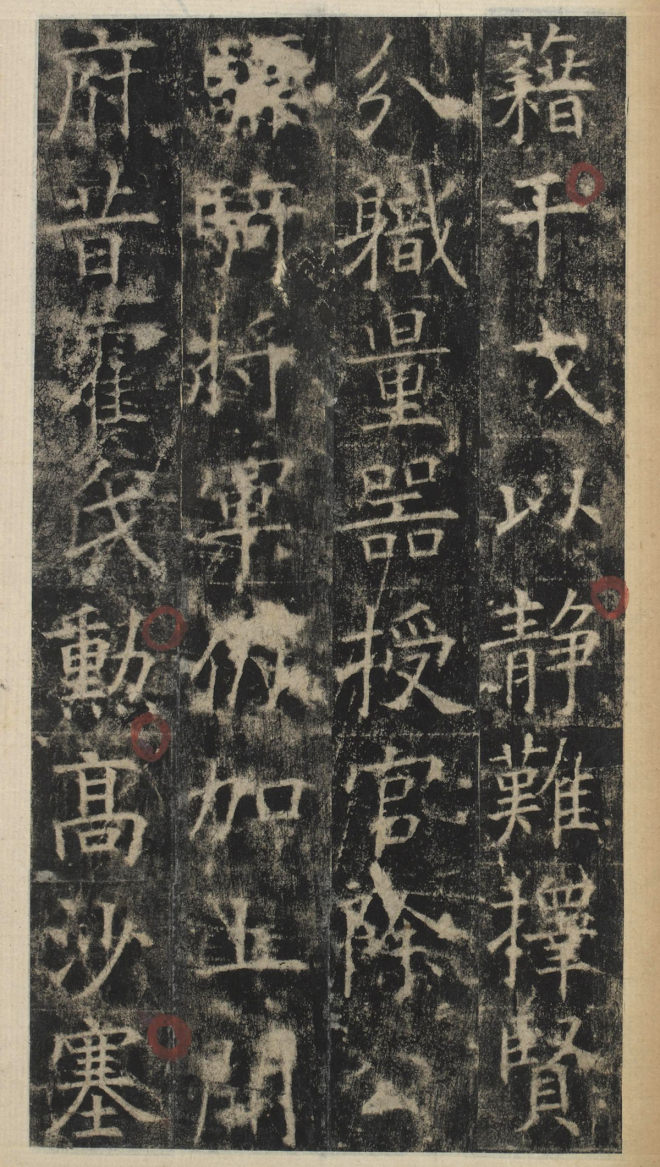 藉干戈以静難擇賢
分職量器授官除
驃騎將軍仍加上開
府昔霍氏勳高沙塞